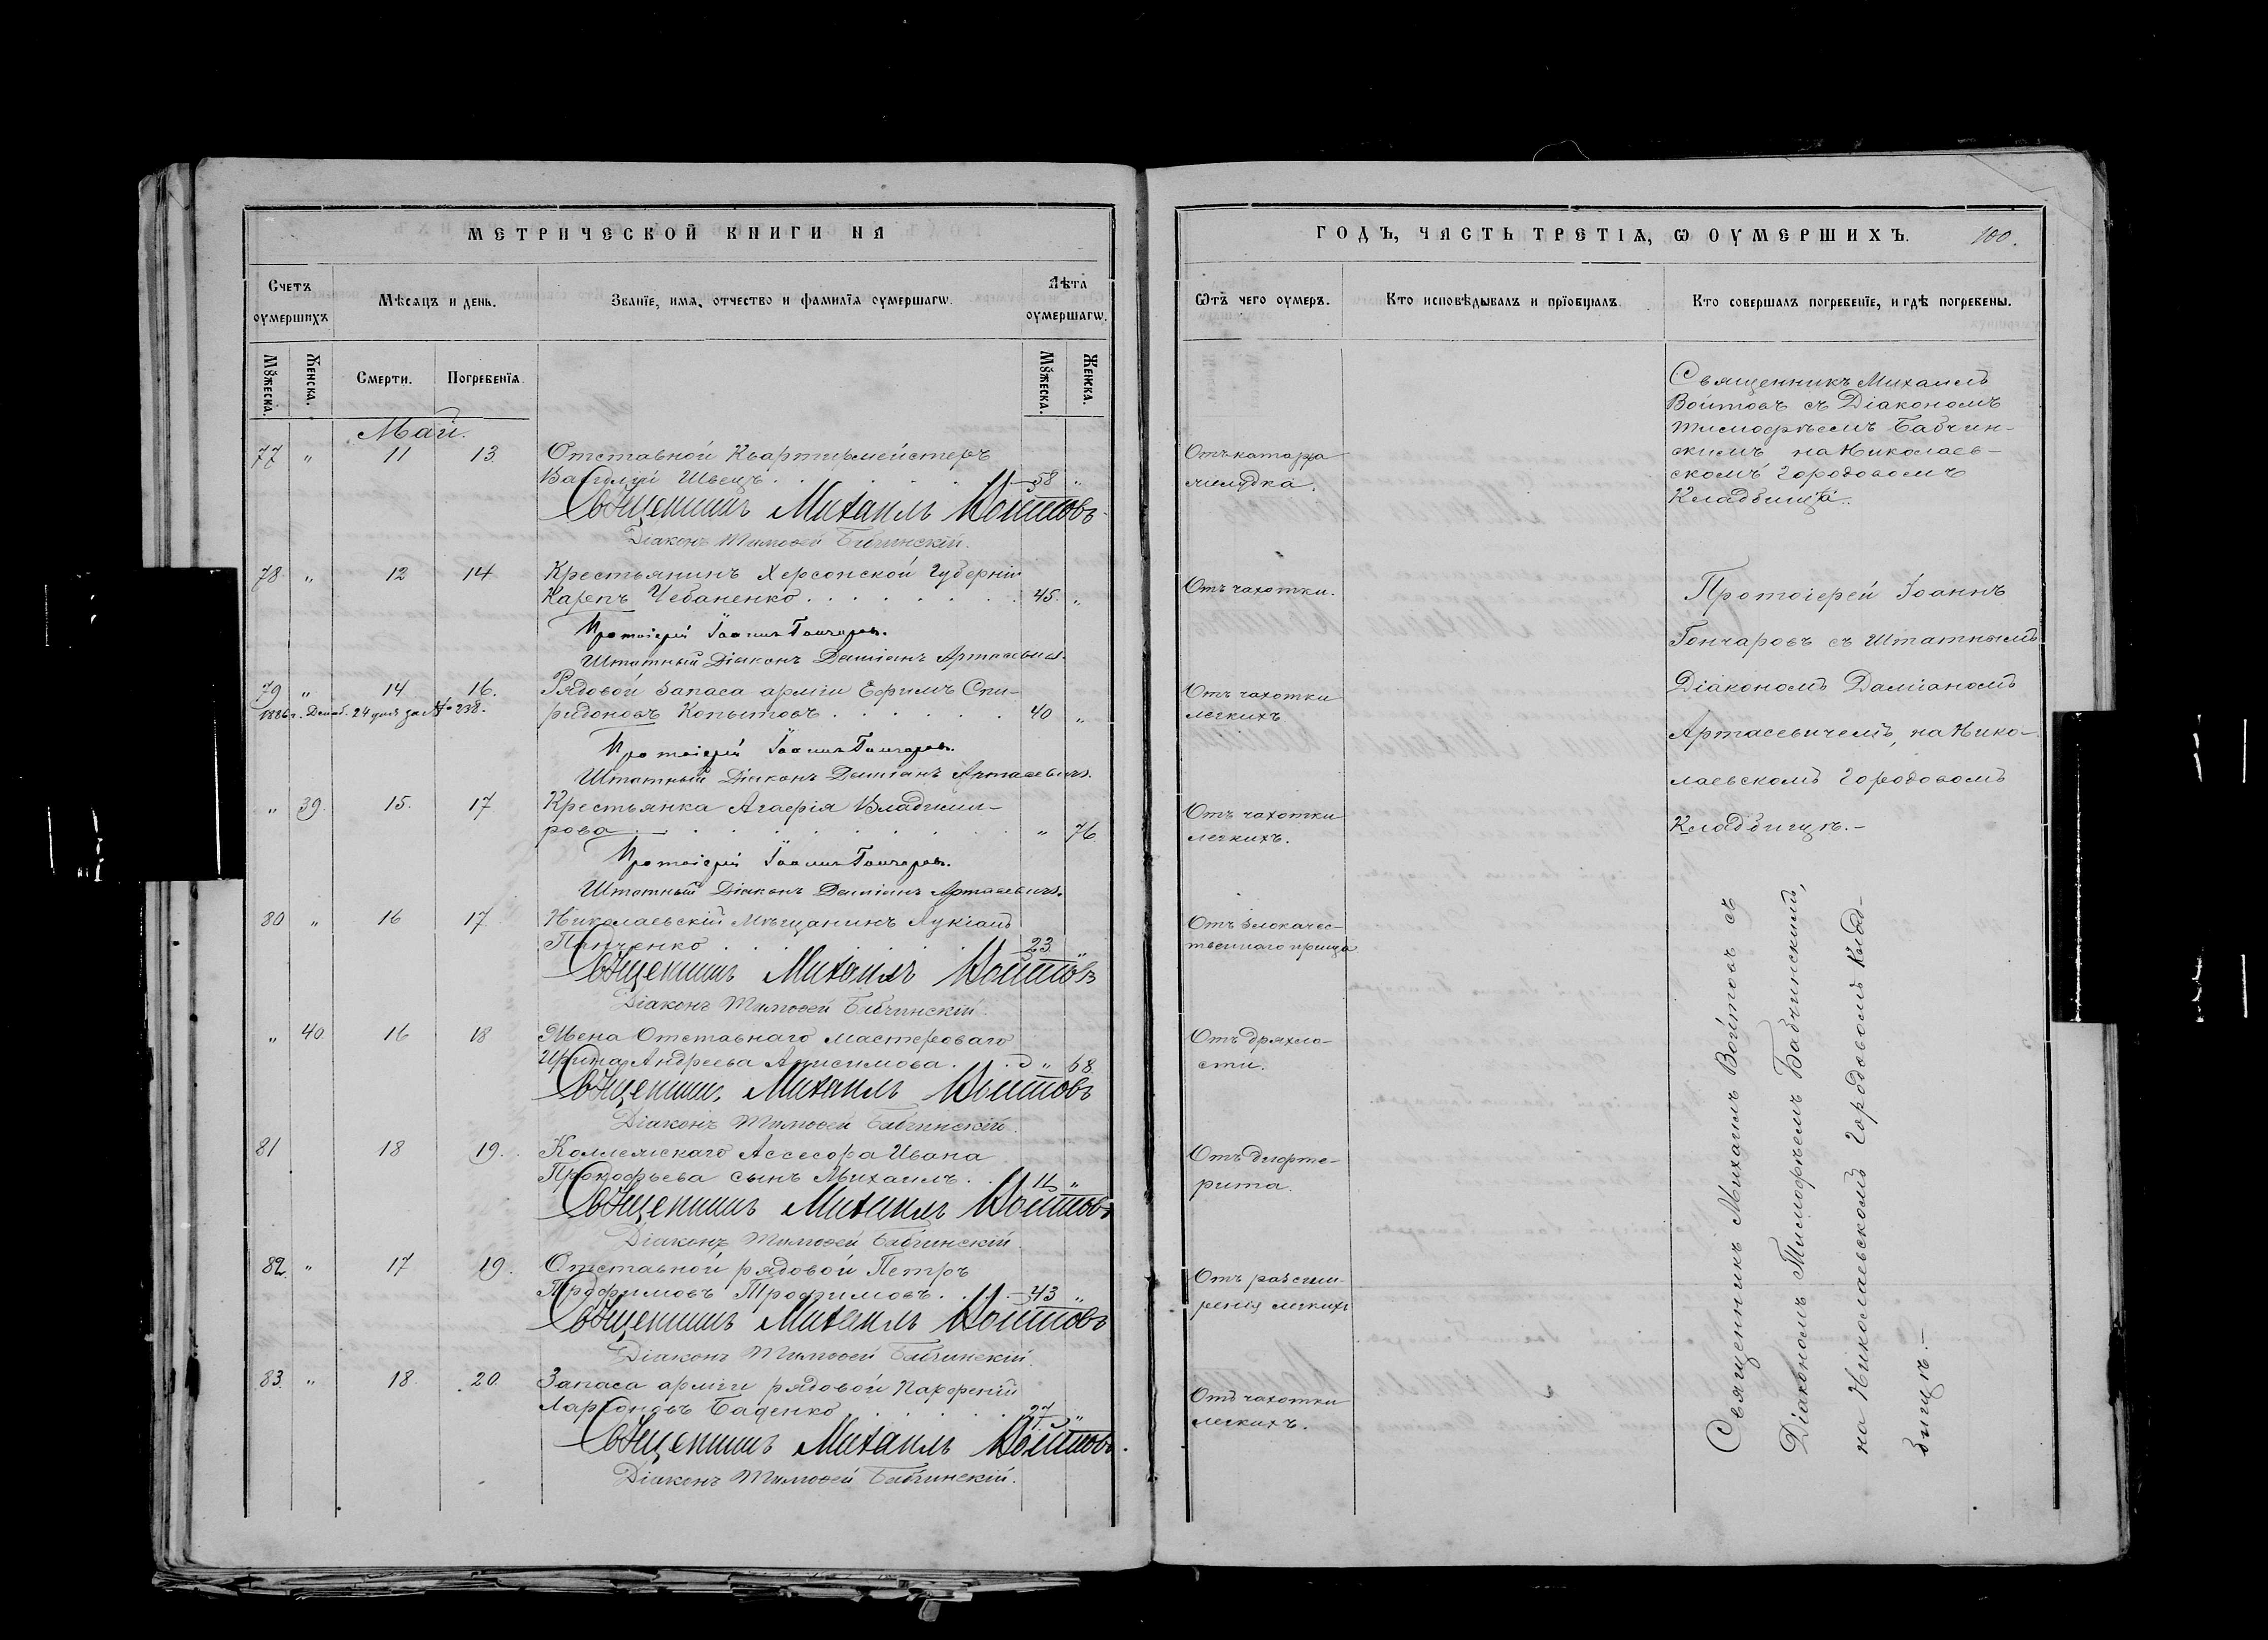 МЕТРИЧЕСКОЙ КНИГИ НА
Счетъ оумершихъ
Мѣсяцъ и день.
Званїе, имѧ, отчество и фамилїѧ оумершагѡ.
Лѣта оумершагѡ.
Мꙋжеска.
Женска.
Смерти.
Погребенїѧ.
Мꙋжеска.
Женска.
Май.
77 „ 11 13 Отставной Квартирмейстеръ
Василій Швецъ 58 „
Священникъ Михаилъ Войтовъ
Діаконъ Тимоѳей Бабчинскій.
78 „ 12 14 Крестьянинъ Херсонской губерніи
Карпъ Чебаненко 45 „
Протоіерей Іоаннъ Гончаровъ.
Штатный Діаконъ Даміанъ Артасевичъ.
79 „ 14 16. Рядовой запаса арміи Ефимъ Спи-
1886 г. Декаб. 24 дня за № 238. ридоновъ Копытовъ 40 „
Протоіерей Іоаннъ Гончаровъ.
Штатный Діаконъ Даміанъ Артасевичъ.
„ 39. 15. 17 Крестьянка Агафія Владими-
рова „ 76
Протоіерей Іоаннъ Гончаровъ.
Штатный Діаконъ Даміанъ Артасевичъ.
80 „ 16 17 Николаевскій мѣщанинъ Лукіанъ
Панченко 23 „
Священникъ Михаилъ Войтовъ
Діаконъ Тимоѳей Бабчинскій.
„ 40 16 18 Жена Отставнаго мастероваго
Ирина Андреева Анисимова „ 68.
Священникъ Михаилъ Войтовъ
Діаконъ Тимоѳей Бабчинскій.
81 18 19. Коллежскаго Ассесора Ивана
Прокофьева сынъ Михаилъ „
Священникъ Михаилъ Войтовъ
Діаконъ Тимоѳей Бабчинскій.
82. „ 17 19. Отставной рядовой Петръ
Трофимовъ Трофимовъ 43 „
Священникъ Михаилъ Войтовъ
Діаконъ Тимоѳей Бабчинскій.
83. „ 18 20. Запаса арміи рядовой Парфеній
Ларіоновъ Баденко 27 „
Священникъ Михаилъ Войтовъ.
Діаконъ Тимоѳей Бабчинскій.
ГОДЪ, ЧАСТЬ ТРЕТІѦ, Ѡ ОУМЕРШИХЪ. 100.
Ѿтъ чего оумеръ.
Кто исповѣдывалъ и прїобщалъ.
Кто совершалъ погребенїе, и гдѣ погребены.
Отъ катарра
желудка.
Отъ чахотки.
Отъ чахотки
легкихъ
Отъ чахотки
легкихъ.
Отъ злокачес-
твеннаго прища
Отъ дряхло-
сти.
Отъ дифте-
рита.
Отъ разши-
ренія легкихъ
Отъ чахотки
легкихъ.
Священникъ Михаилъ
Войтовъ съ Діакономъ
Тимофѣемъ Бабчин-
скимъ на Николаев-
скомъ городовомъ
Кладбищѣ.
Протоіерей Іоаннъ
Гончаровъ съ Штатнымъ
Діакономъ Даміаномъ
Артасевичемъ, на Нико-
лаевскомъ городовомъ
Кладбищѣ.-
Священникъ Михаилъ Войтовъ съ
Діакономъ Тимофѣемъ Бабчинскимъ,
на Николаевскомъ городовомъ Клад-
бищѣ.-